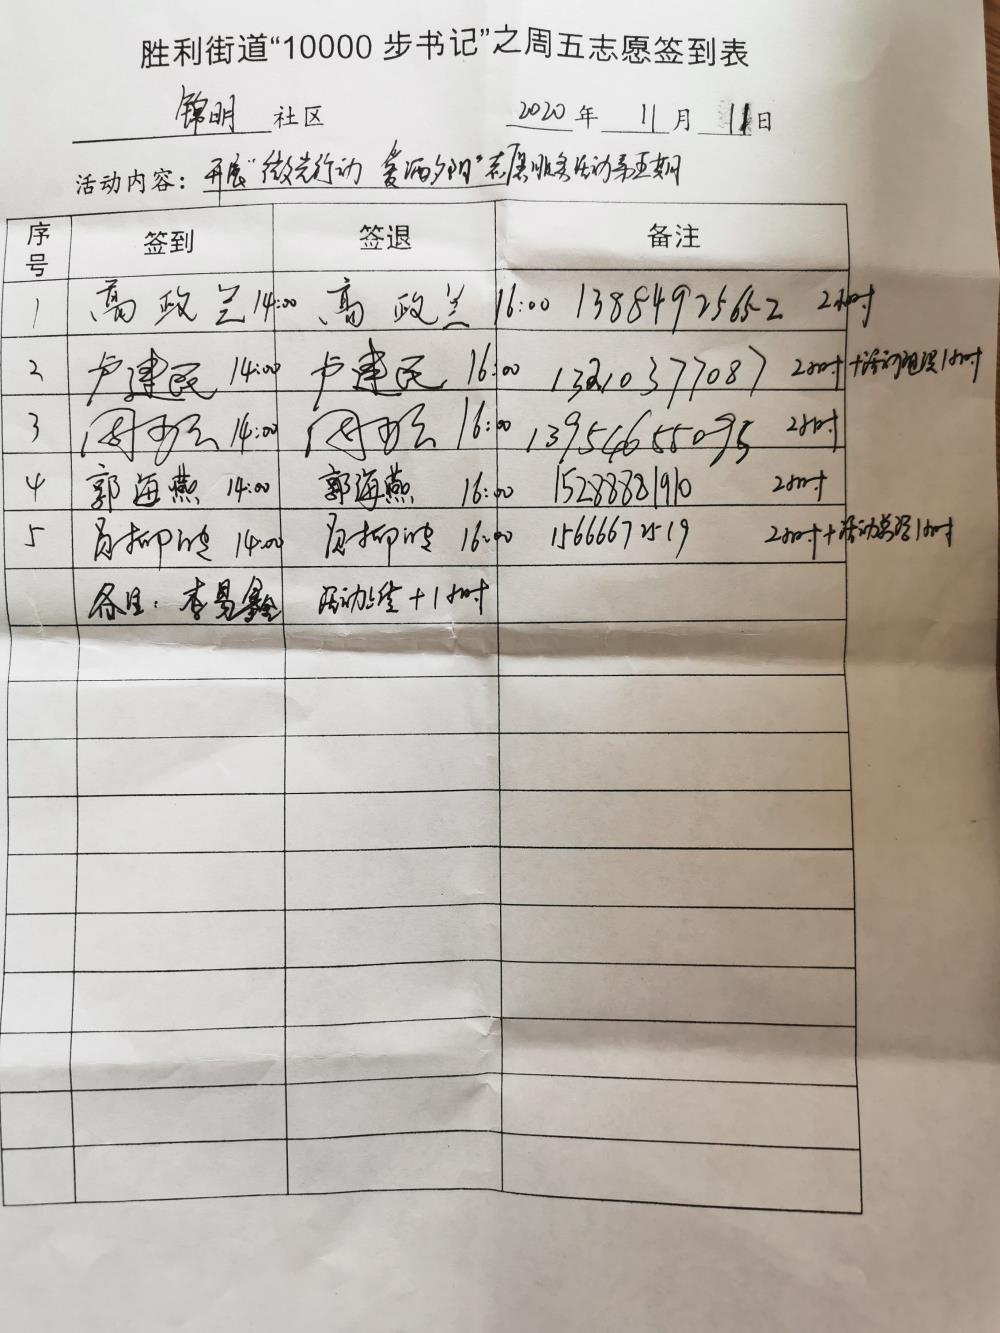 胜利街道“10000步书记”之周五志愿签到表
锦明 社区 2020年 11月 11日
活动内容：开展“微光行动 爱洒夕阳”志愿服务活动第五期
序号 签到 签退 备注
1 高政兰 14:00 高政兰 16:00 13884925652 2小时
2 卢建民 14:00 卢建民 16:00 13210377087 2小时+活动组织1小时
3 14:00 16:00 13954655095 2小时
4 郭海燕 14:00 郭海燕 16:00 15288881910 2小时
5 14:00 16:00 15666672519 2小时+活动总结1小时
备注：李易鑫 活动上传+1小时